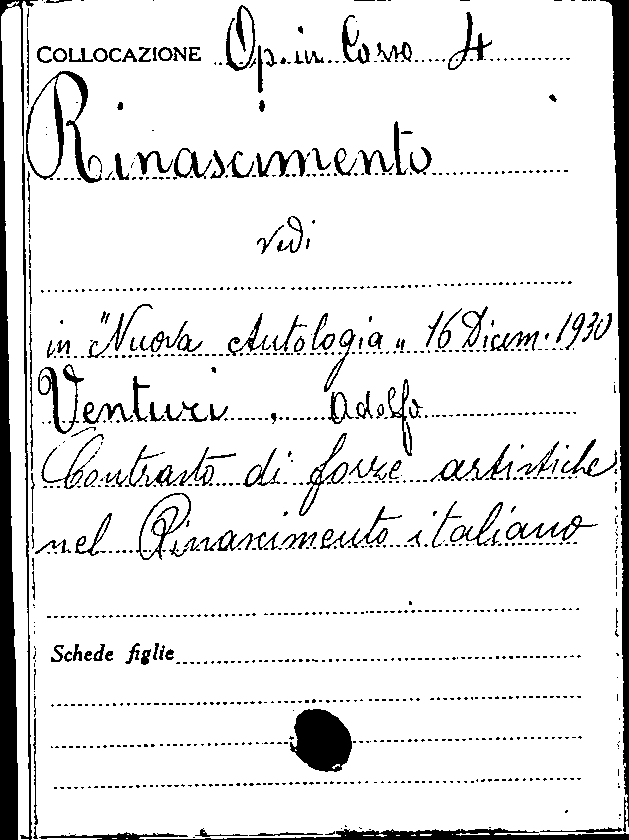 COLLOCAZIONE Op. in Corso 4
Rinascimento
vedi
in "Nuova Antologia" 16 Dicem. 1930
Venturi, Adolfo
Contrasto di forze artistiche
nel Rinascimento italiano
Schede figlie